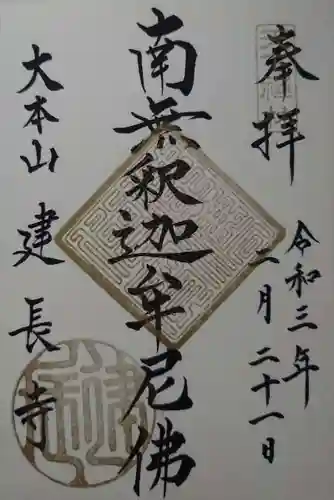 奉拝
令和三年
二月二十一日
南無釈迦牟尼佛
大本山 建長寺